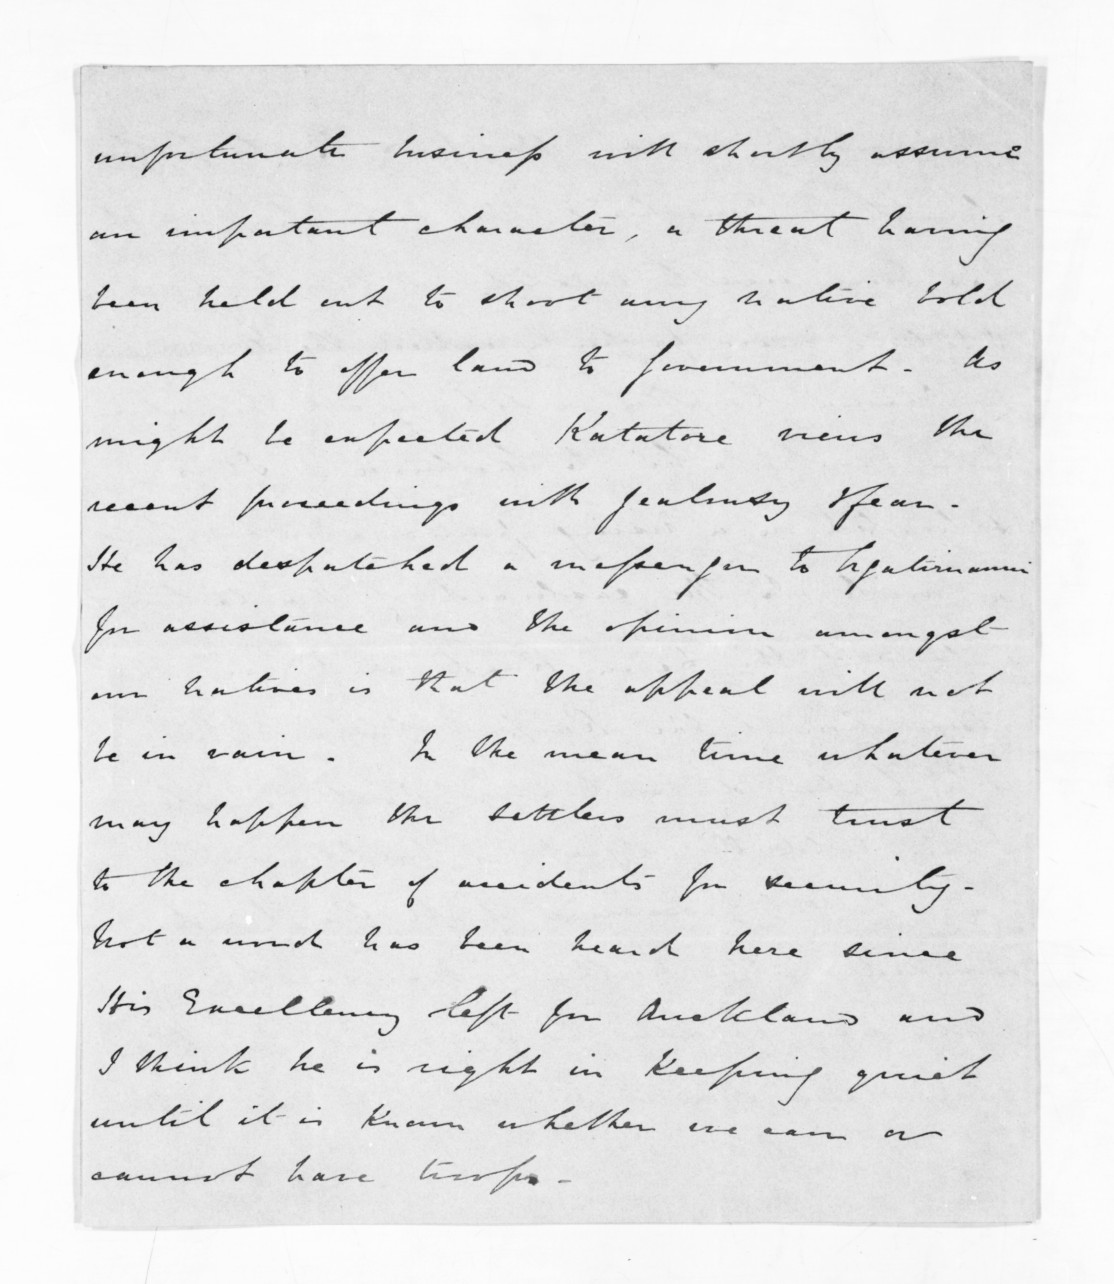 unfortunate business will shortly assume
an important character, a threat having
been held out to shoot any native bold
enough to offer land to Government. As
might be expected Katatore views the
recent proceedings with jealousy & fear.
He has despatched a messenger to Ngatiruanui
for assistance and the opinion amongst
our natives is that the appeal will not
be in vain. In the mean time whatever
may happen the settlers must trust
to the chapter of accidents for security.
Not a word has been heard here since
His Excellency left for Auckland and
I think he is right in keeping quiet
until it is known whether we can or
cannot have troops.